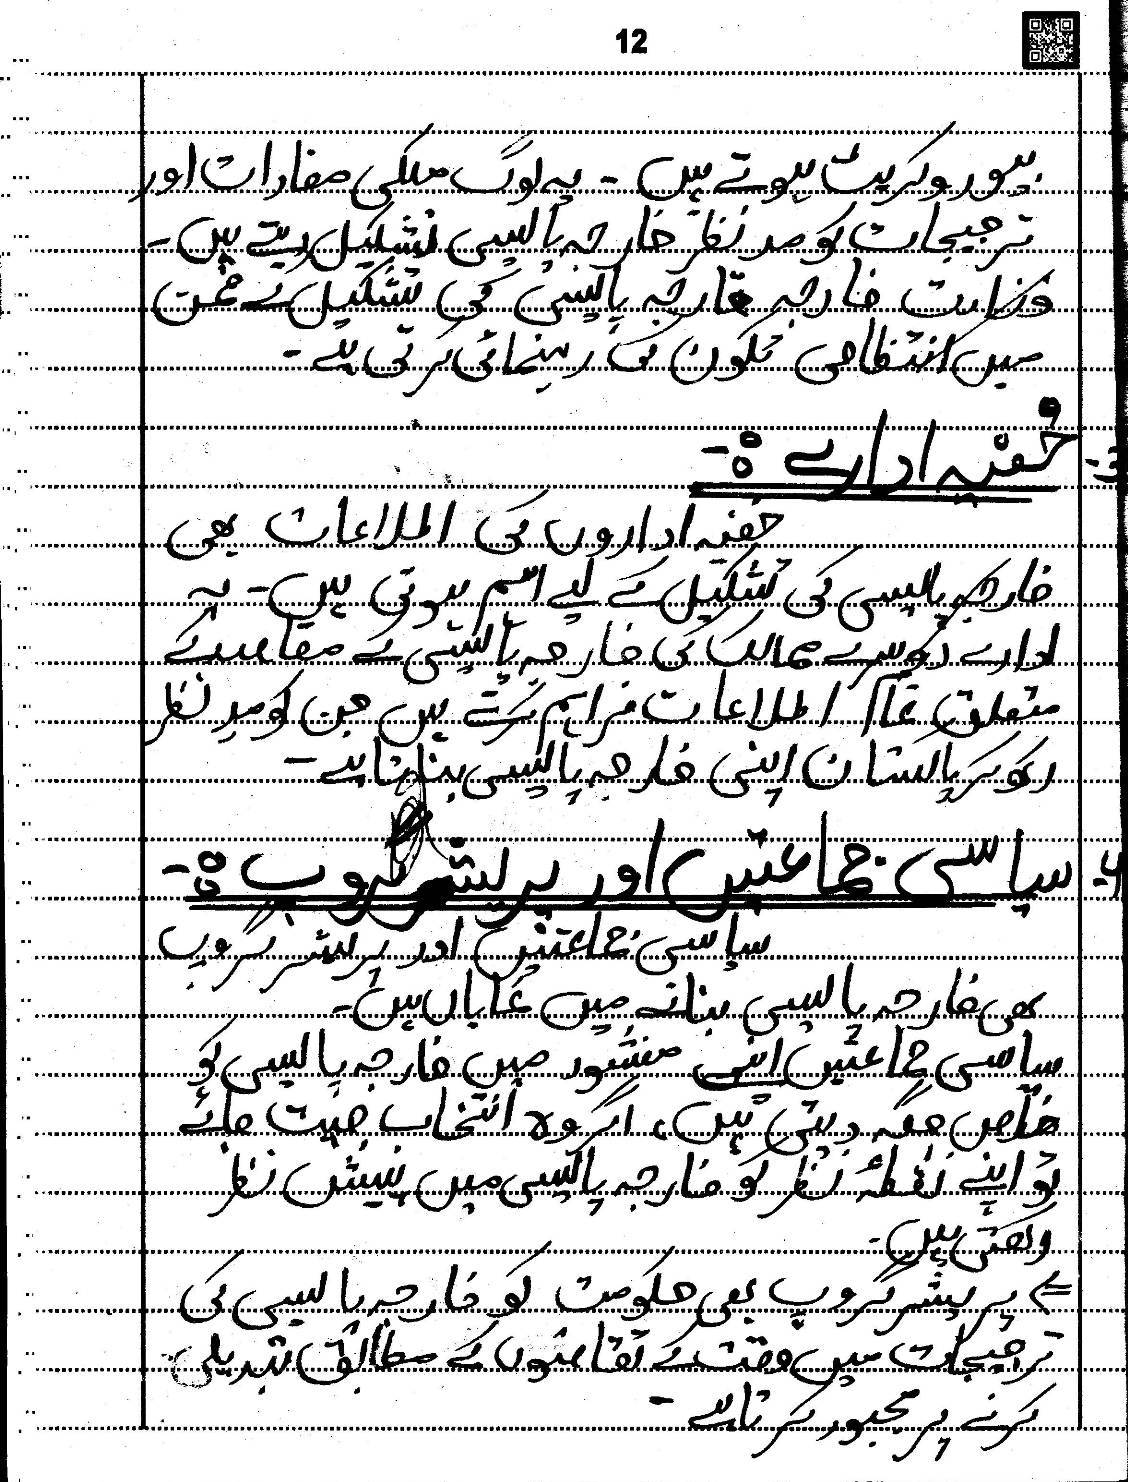 12
بیوروکریٹ ہوتے ہیں - یہ لوگ ملکی مفادات اور
ترجیحات کو مد نظر خارجہ پالیسی تشکیل دیتے ہیں -
وزارت خارجہ خارجہ پالیسی کی تشکیل کے ضمن
میں انتظامی تکون کی رہنمائی کرتی ہے -
خفیہ ادارے :-
خفیہ اداروں کی اطلاعات بھی
خارجہ پالیسی کی تشکیل کے لیے اہم ہوتی ہیں - یہ
ادارے دوسرے ممالک کی خارجہ پالیسی کے مقاصد کے
متعلق تمام اطلاعات فراہم کرتے ہیں جن کو مدِ نظر
رکھ کر پاکستان اپنی خارجہ پالیسی بناتا ہے -
۴- سیاسی جماعتیں اور پریشر گروپ :-
سیاسی جماعتیں اور پریشر گروپ
بھی خارجہ پالیسی بنانے میں نمایاں ہیں -
سیاسی جماعتیں اپنے منشور میں خارجہ پالیسی کو
خاص جگہ دیتی ہیں، اگر وہ انتخاب جیت جائے
تو اپنے نقطۂ نظر کو خارجہ پالیسی میں پیش نظر
رکھتی ہیں -
⇐ پریشر گروپ بھی حکومت کو خارجہ پالیسی کی
ترجیحات میں وقت کے تقاضوں کے مطابق تبدیلی
کرنے پر مجبور کرتا ہے -